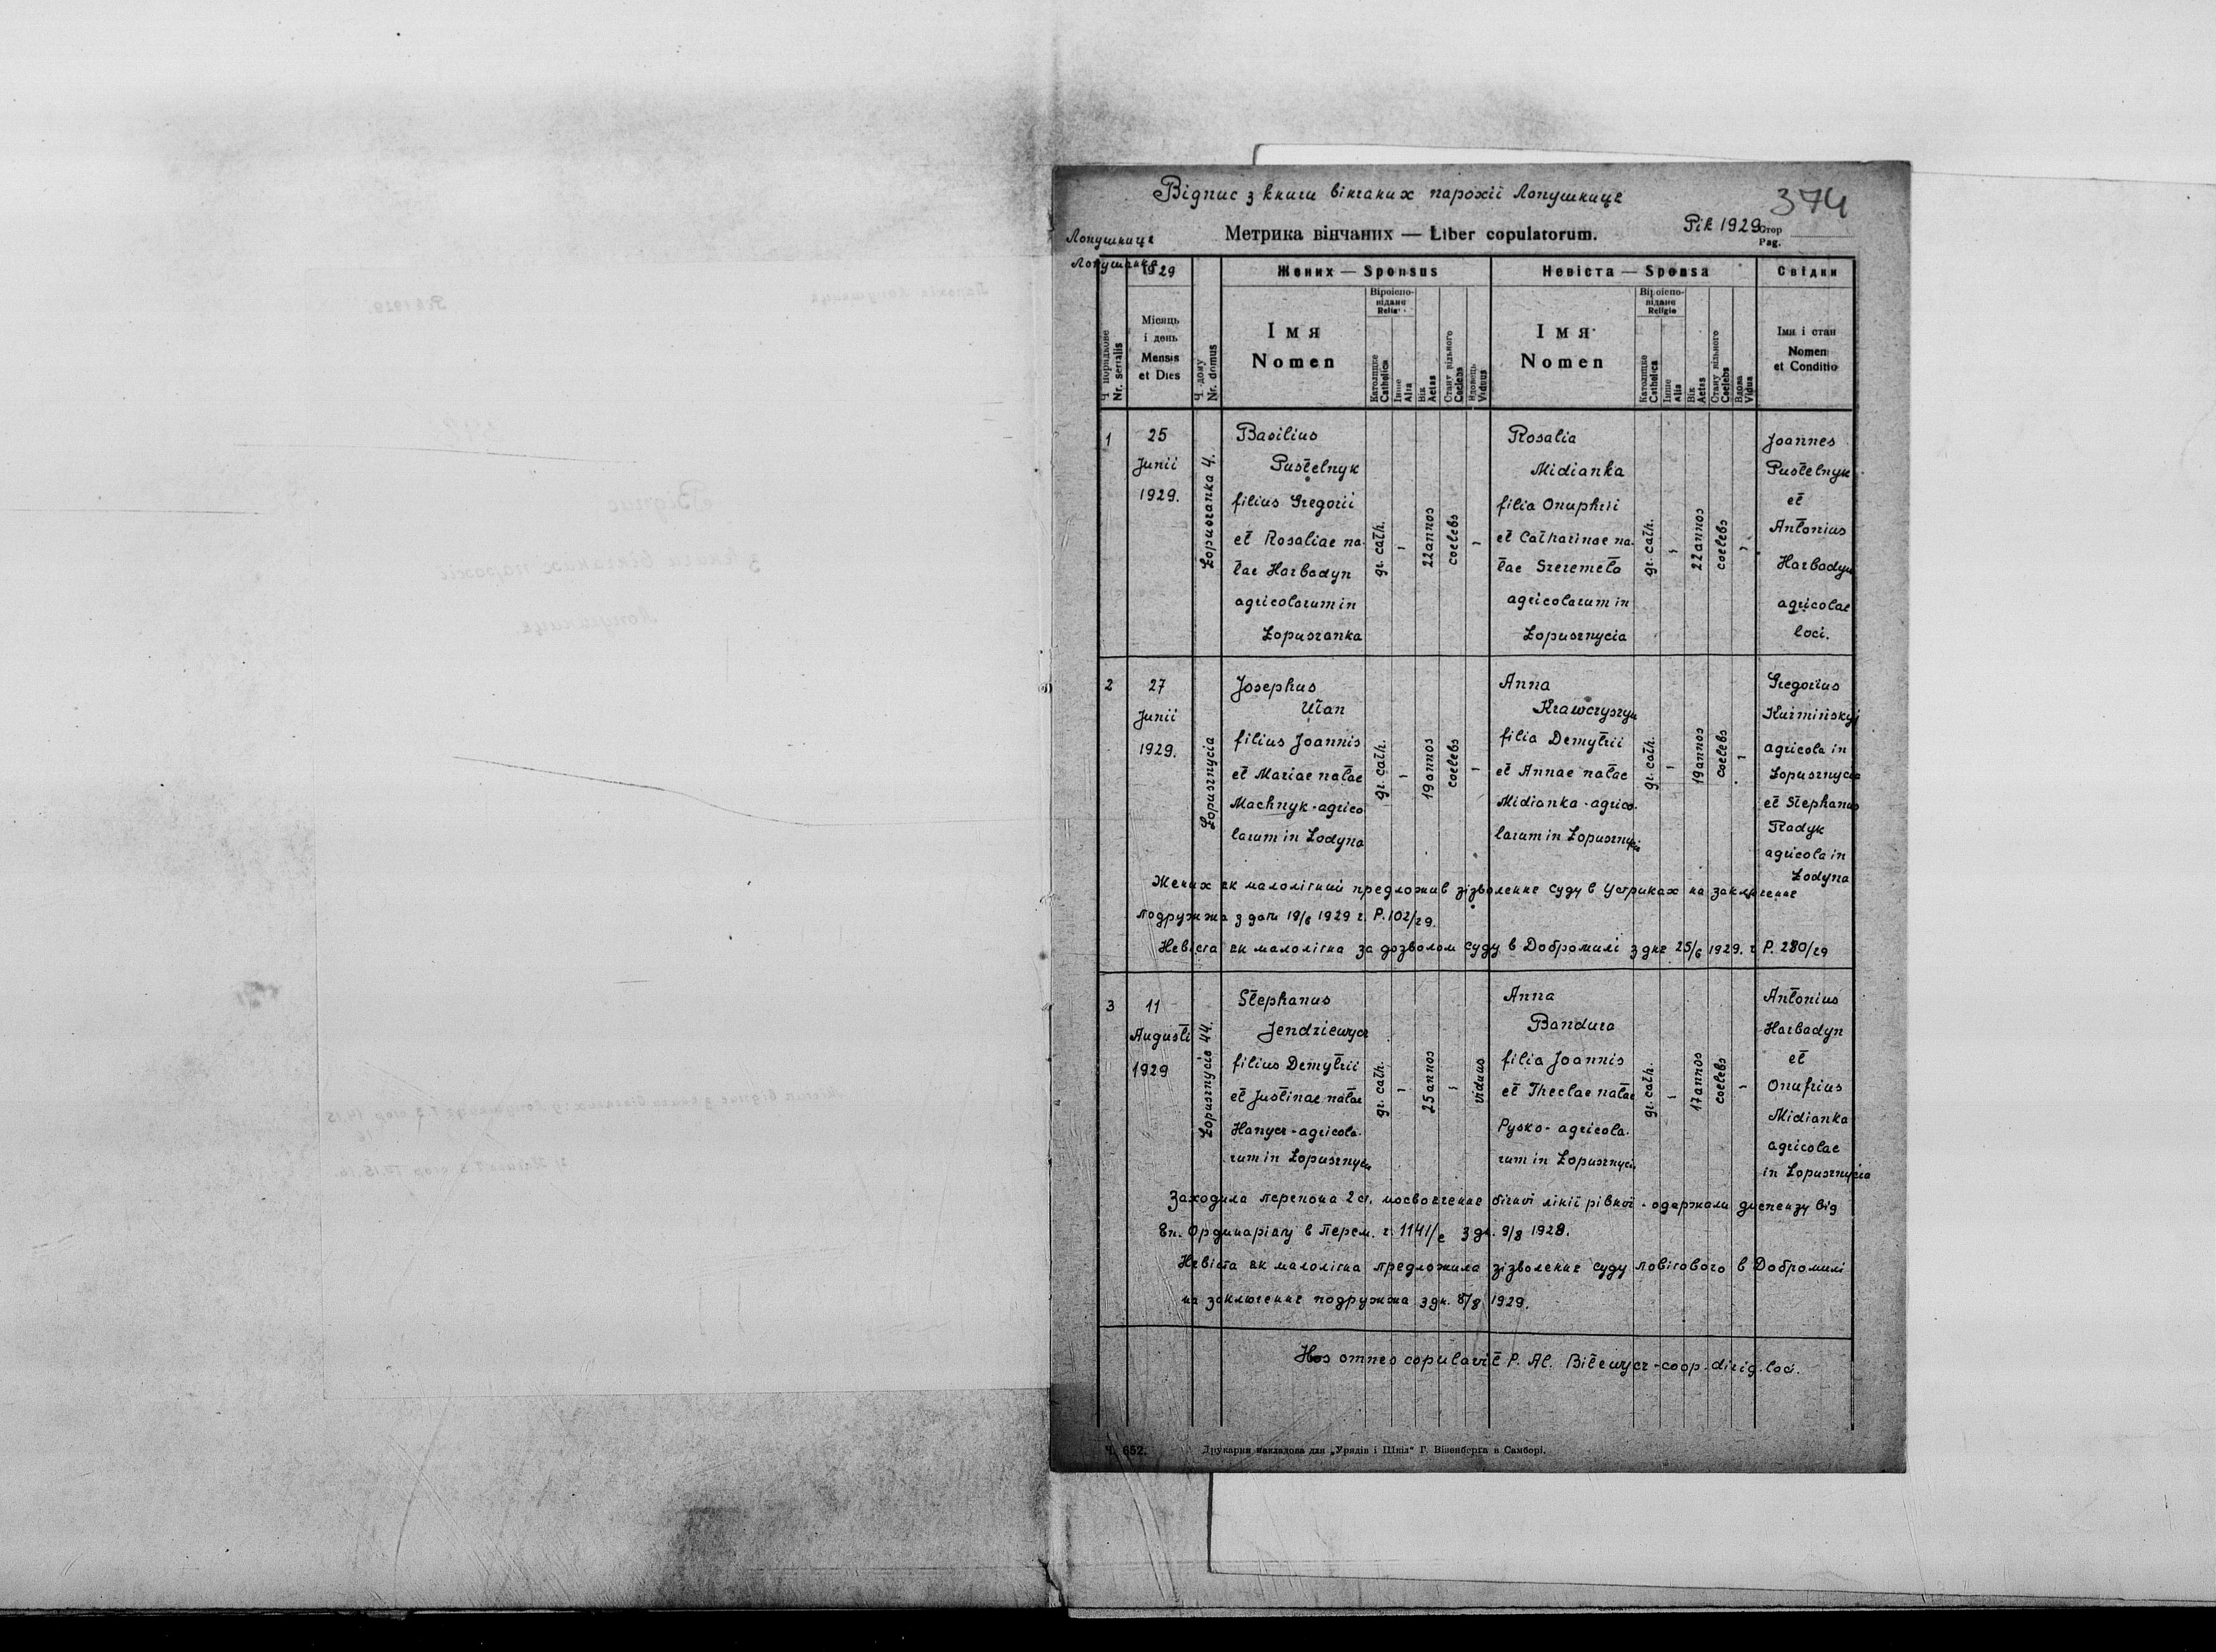 Відпис з книги вінчаних парохії Лопушниця
374
Рік 1929
Стор
Pag.
Метрика вінчаних — Liber copulatorum.
Лопушниця
Лопушанка
1929
Жених — Sponsus
Невіста — Sponsa
Свідки
Ч порядкове
Nr. serialis
Місяць
і день
Mensis
et Dies
Ч. дому
Nr. domus
Імя
Nomen
Віроіспо-
відане
Католицке
Catholica
Інше
Alia
Вік
Aetas
Стану вільного
Coelebs
Вдовець
Viduus
Імя
Nomen
Віроіспо-
відане
Religio
Католицке
Catholica
Інше
Alia
Вік
Aetas
Стану вільного
Coelebs
Вдова
Vidua
Імя і стан
Nomen
et Conditio
1
25
Junii
1929.
Łopuszanka 4.
Basilius
Pustelnyk
filius Gregorii
et Rosaliae na-
tae Harbadyn
agricolarum in
Łopuszanka
gr. cath.
-
22 annos
coelebs
-
Rosalia
Midianka
filia Onuphrii
et Catharinae na-
tae Szeremeta
agricolarum in
Łopusznycia
gr. cath.
-
22 annos
coelebs
-
Joannes
Pustelnyk
et
Antonius
Harbadyn
agricolae
loci.
2
27
Junii
1929.
Łopusznycia
Josephus
Utan
filius Joannis
et Mariae natae
Machnyk - agrico
larum in Łodyna
gr. cath.
-
19 annos
coelebs
-
Anna
Krawczyszyn
filia Demytrii
et Annae natae
Midianka - agrico-
larum in Łopusznycia
gr. cath.
-
19 annos
coelebs
-
Gregorius
Kuzmińskyj
agricola in
Łopusznycia
et Stephanus
Radyk
agricola in
Łodyna
Жених як малолітний предложив зізволенне суду в Устриках на заключенне
подружжа з дати 19/6 1929 ч. P. 102/29.
Невіста як малолітна за дозволом суду в Добромилі з дне 25/6 1929. ч P. 280/29
3
11
Augusti
1929
Łopusznycia 44.
Stephanus
Jendziewycz
filius Demytrii
et Justinae natae
Hanycz - agricola-
rum in Łopusznycia
gr. cath.
-
25 annos
-
viduus
Anna
Bandura
filia Joannis
et Theclae natae
Pysko - agricola-
rum in Łopusznycia
gr. cath.
-
17 annos
coelebs
-
Antonius
Harbadyn
et
Onufrius
Midianka
agricolae
in Łopusznycia
Заходила перепона 2 ст. посвоячення бічної лінії рівної - одержали диспензу від
Еп. Ординаріяту в Перем. ч. 1141/е з дн. 9/8 1929.
Невіста як малолітна предложила зізволенне суду повітового в Добромилі
на заключенне подружжа з дн. 8/8 1929.
Hos omnes copulavit P. Al. Bilewycz - coop. dirig. loci.
Ч. 652.
Друкарня накладова для „Урядів і Шкіл" Г. Візенберга в Самборі.